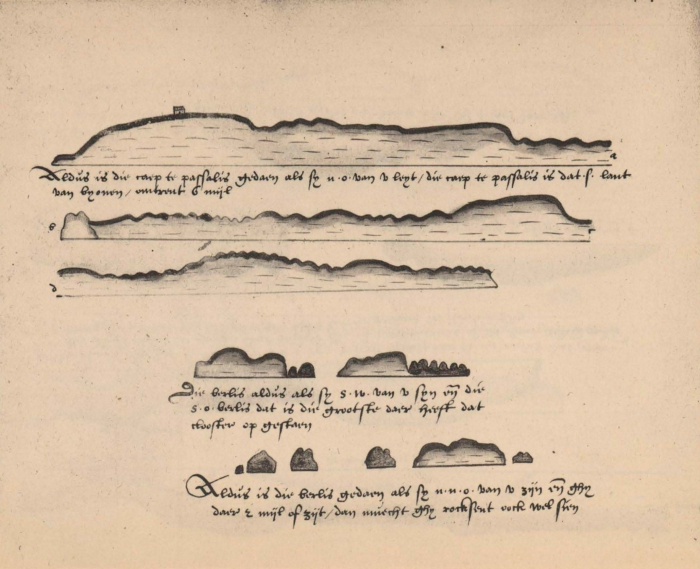 Aldus is die caep te passalis gedaen als sy n·o·van v leyt / die caep te passalis is dat s. lant
van byonen / omtrent 6 mijl
Die berlis aldus als sy s·w·van v syn en̄ die
s·o·berlis dat is die grootste daer heeft dat
clooster op gestaen
Aldus is die berlis gedaen als sy n·n·o·van v zijn en̄ ghy
daer 2 mijl of zijt / dan muecht ghy rocksent oock wel sien